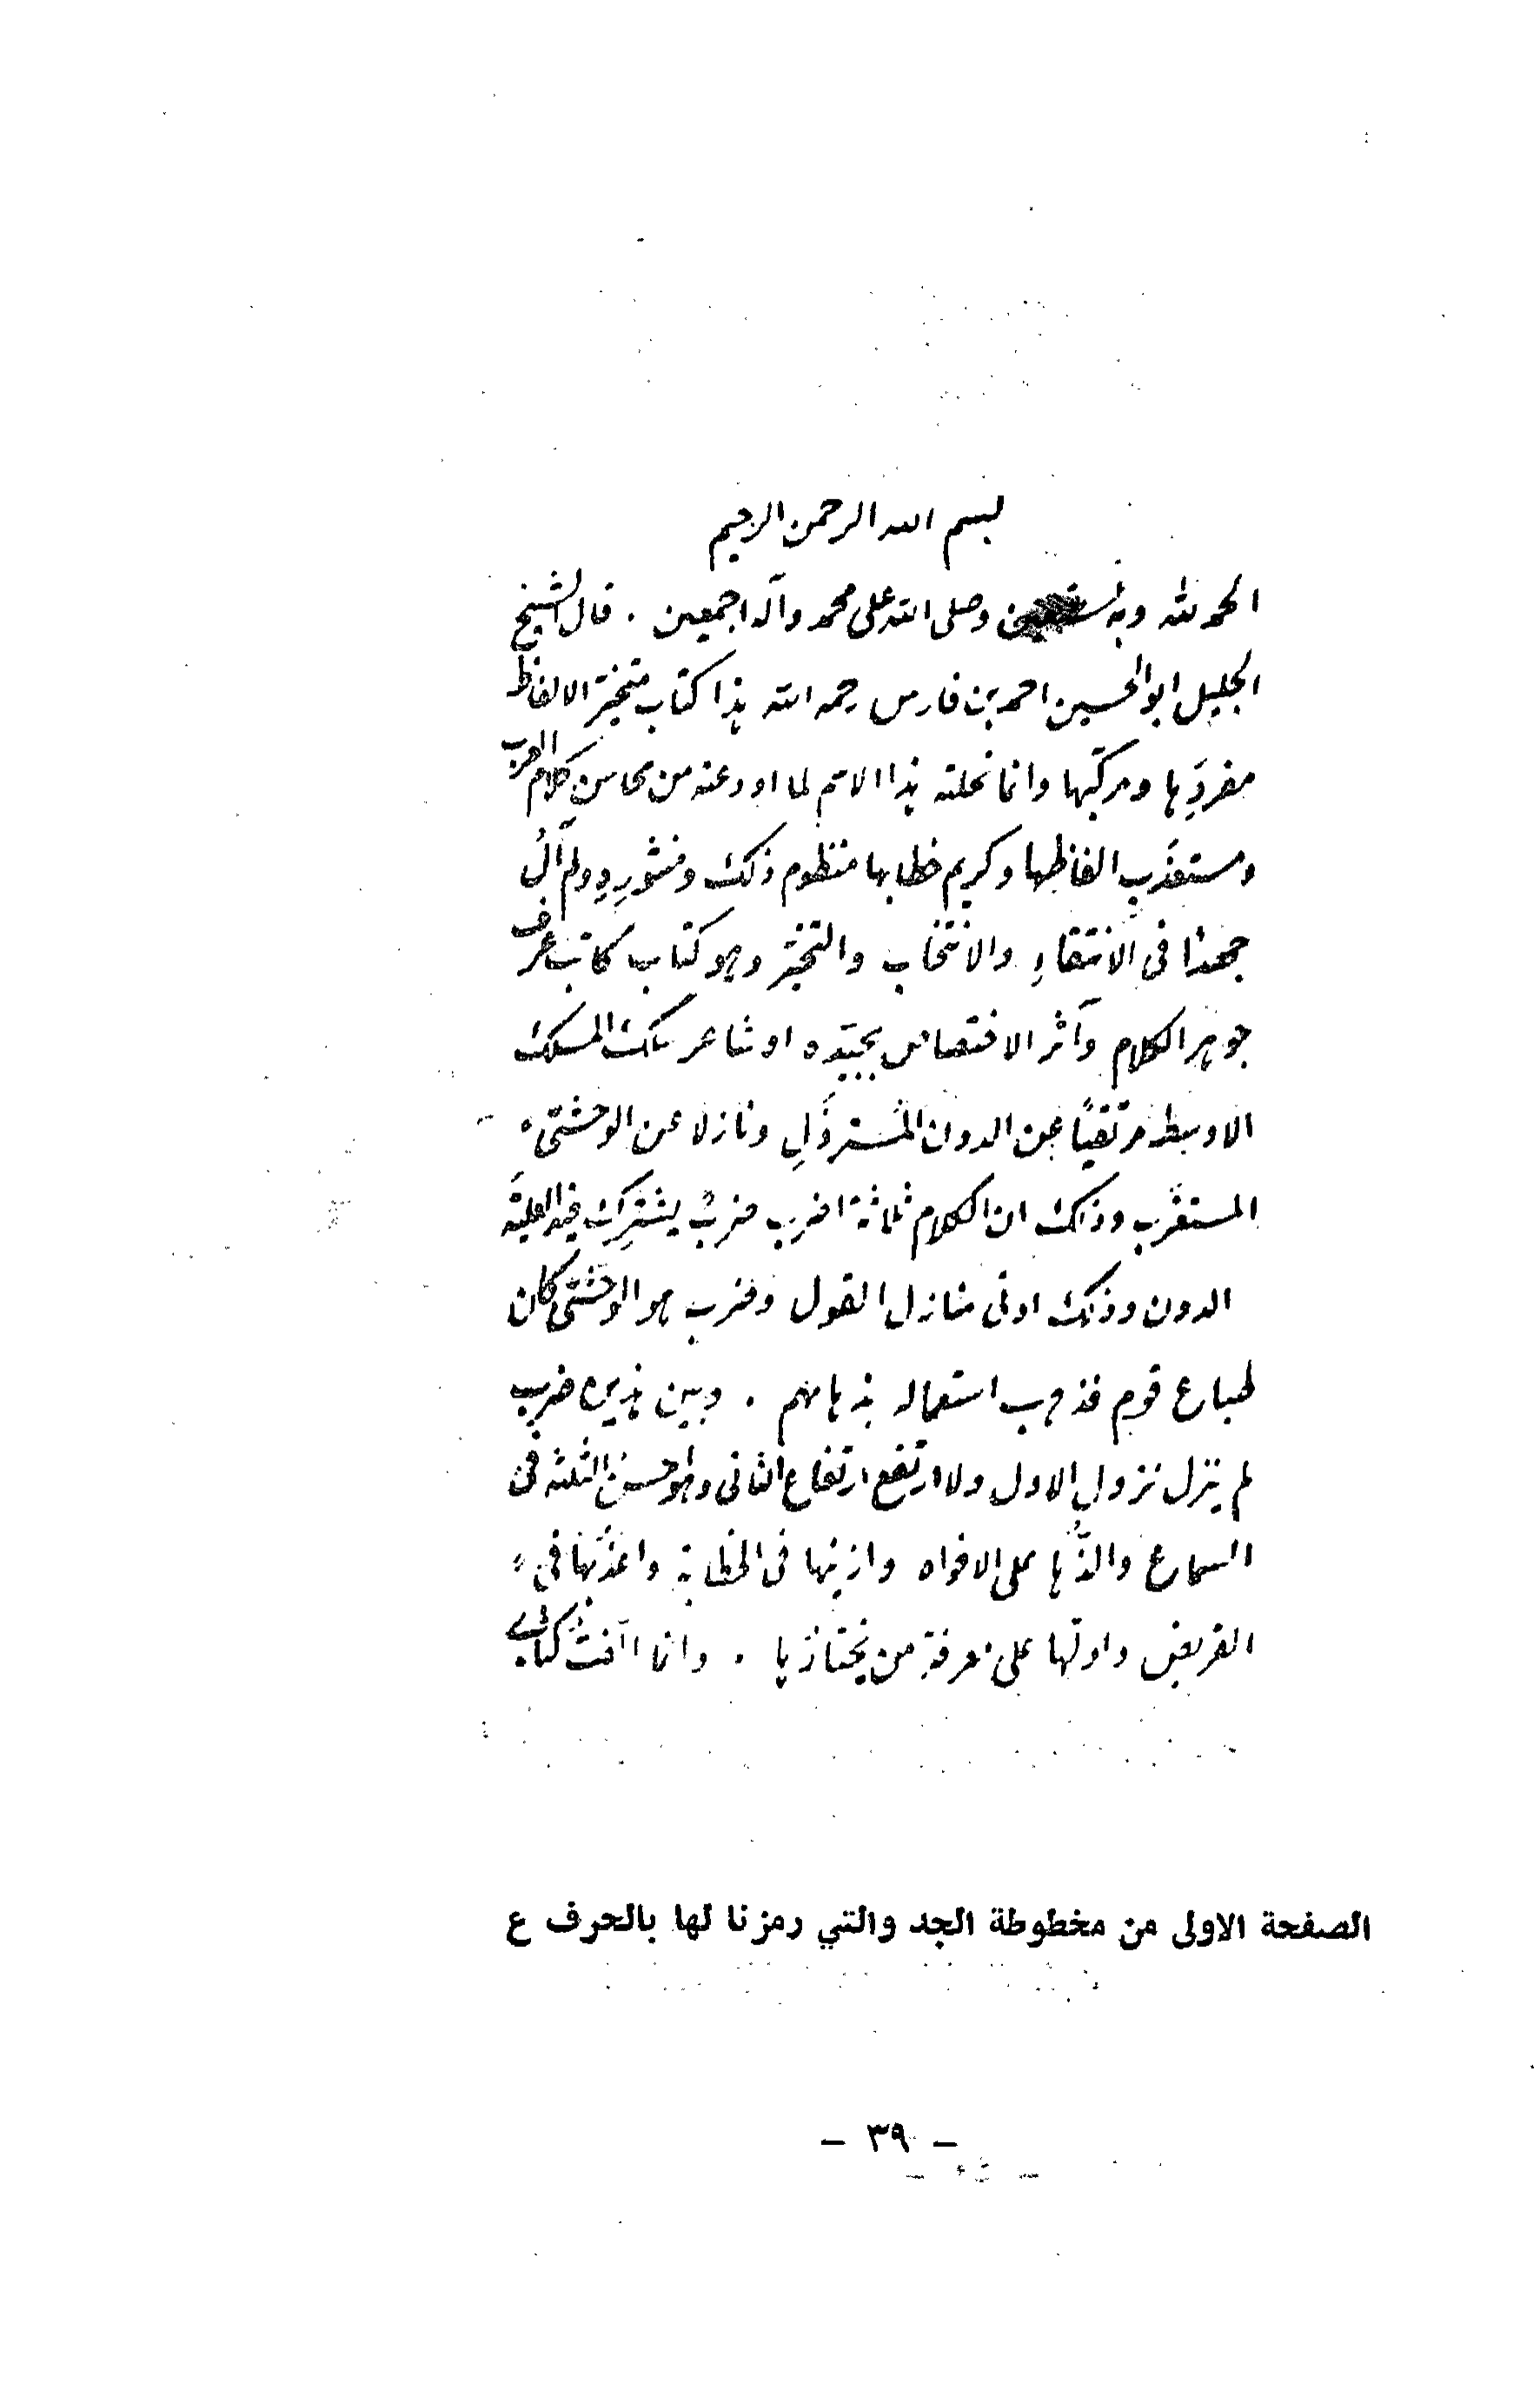 بسم الله الرحمن الرحيم
الحمد لله وبه نستعين وصلى الله على محمد وآله اجمعين . قال الشيخ
الجليل ابو الحسين احمد بن فارس رحمه الله هذا كتاب متخيّر الالفاظ
مفردِها ومركبها وانما نحلته هذا الاسم لما اودعته من محاسنِ كلام العرب
ومستعذَبِ الفاظها وكريم خطابها منظوم ذلك ومنثورِه ولم آلُ
جهدًا فى الانتقاءِ والانتخاب والتخيّر وهو كتاب كاتب عرف
جوهر الكلام وآثر الاختصاص بجيّده او شاعر سلك المسلك
الاوسط مرتقيًا عن الدون المسترذَلِ ونازلا عن الوحشىّ
المستغرَب وذلك ان الكلام ثلاثة اضرب ضربٌ يشترِك فيه العليَة
الدون وذلك ادنى منازل القول وضرب هو الوحشىّ كان
طباع قوم فذهب استعماله بذهابهم . وبين هذين ضرب
لم ينزل نزول الاول ولا ارتفع ارتفاع الثانى وهو احسن الثلثة فى
السماع والذُّها على الافواه وازينها فى الخطابة واعذبُها فى
القريض وادلّها على معرفةِ من يختارها . وانما الّفتُ كتابى
الصفحة الاولى من مخطوطة الجد والتي رمزنا لها بالحرف ع
– ٣٩ –